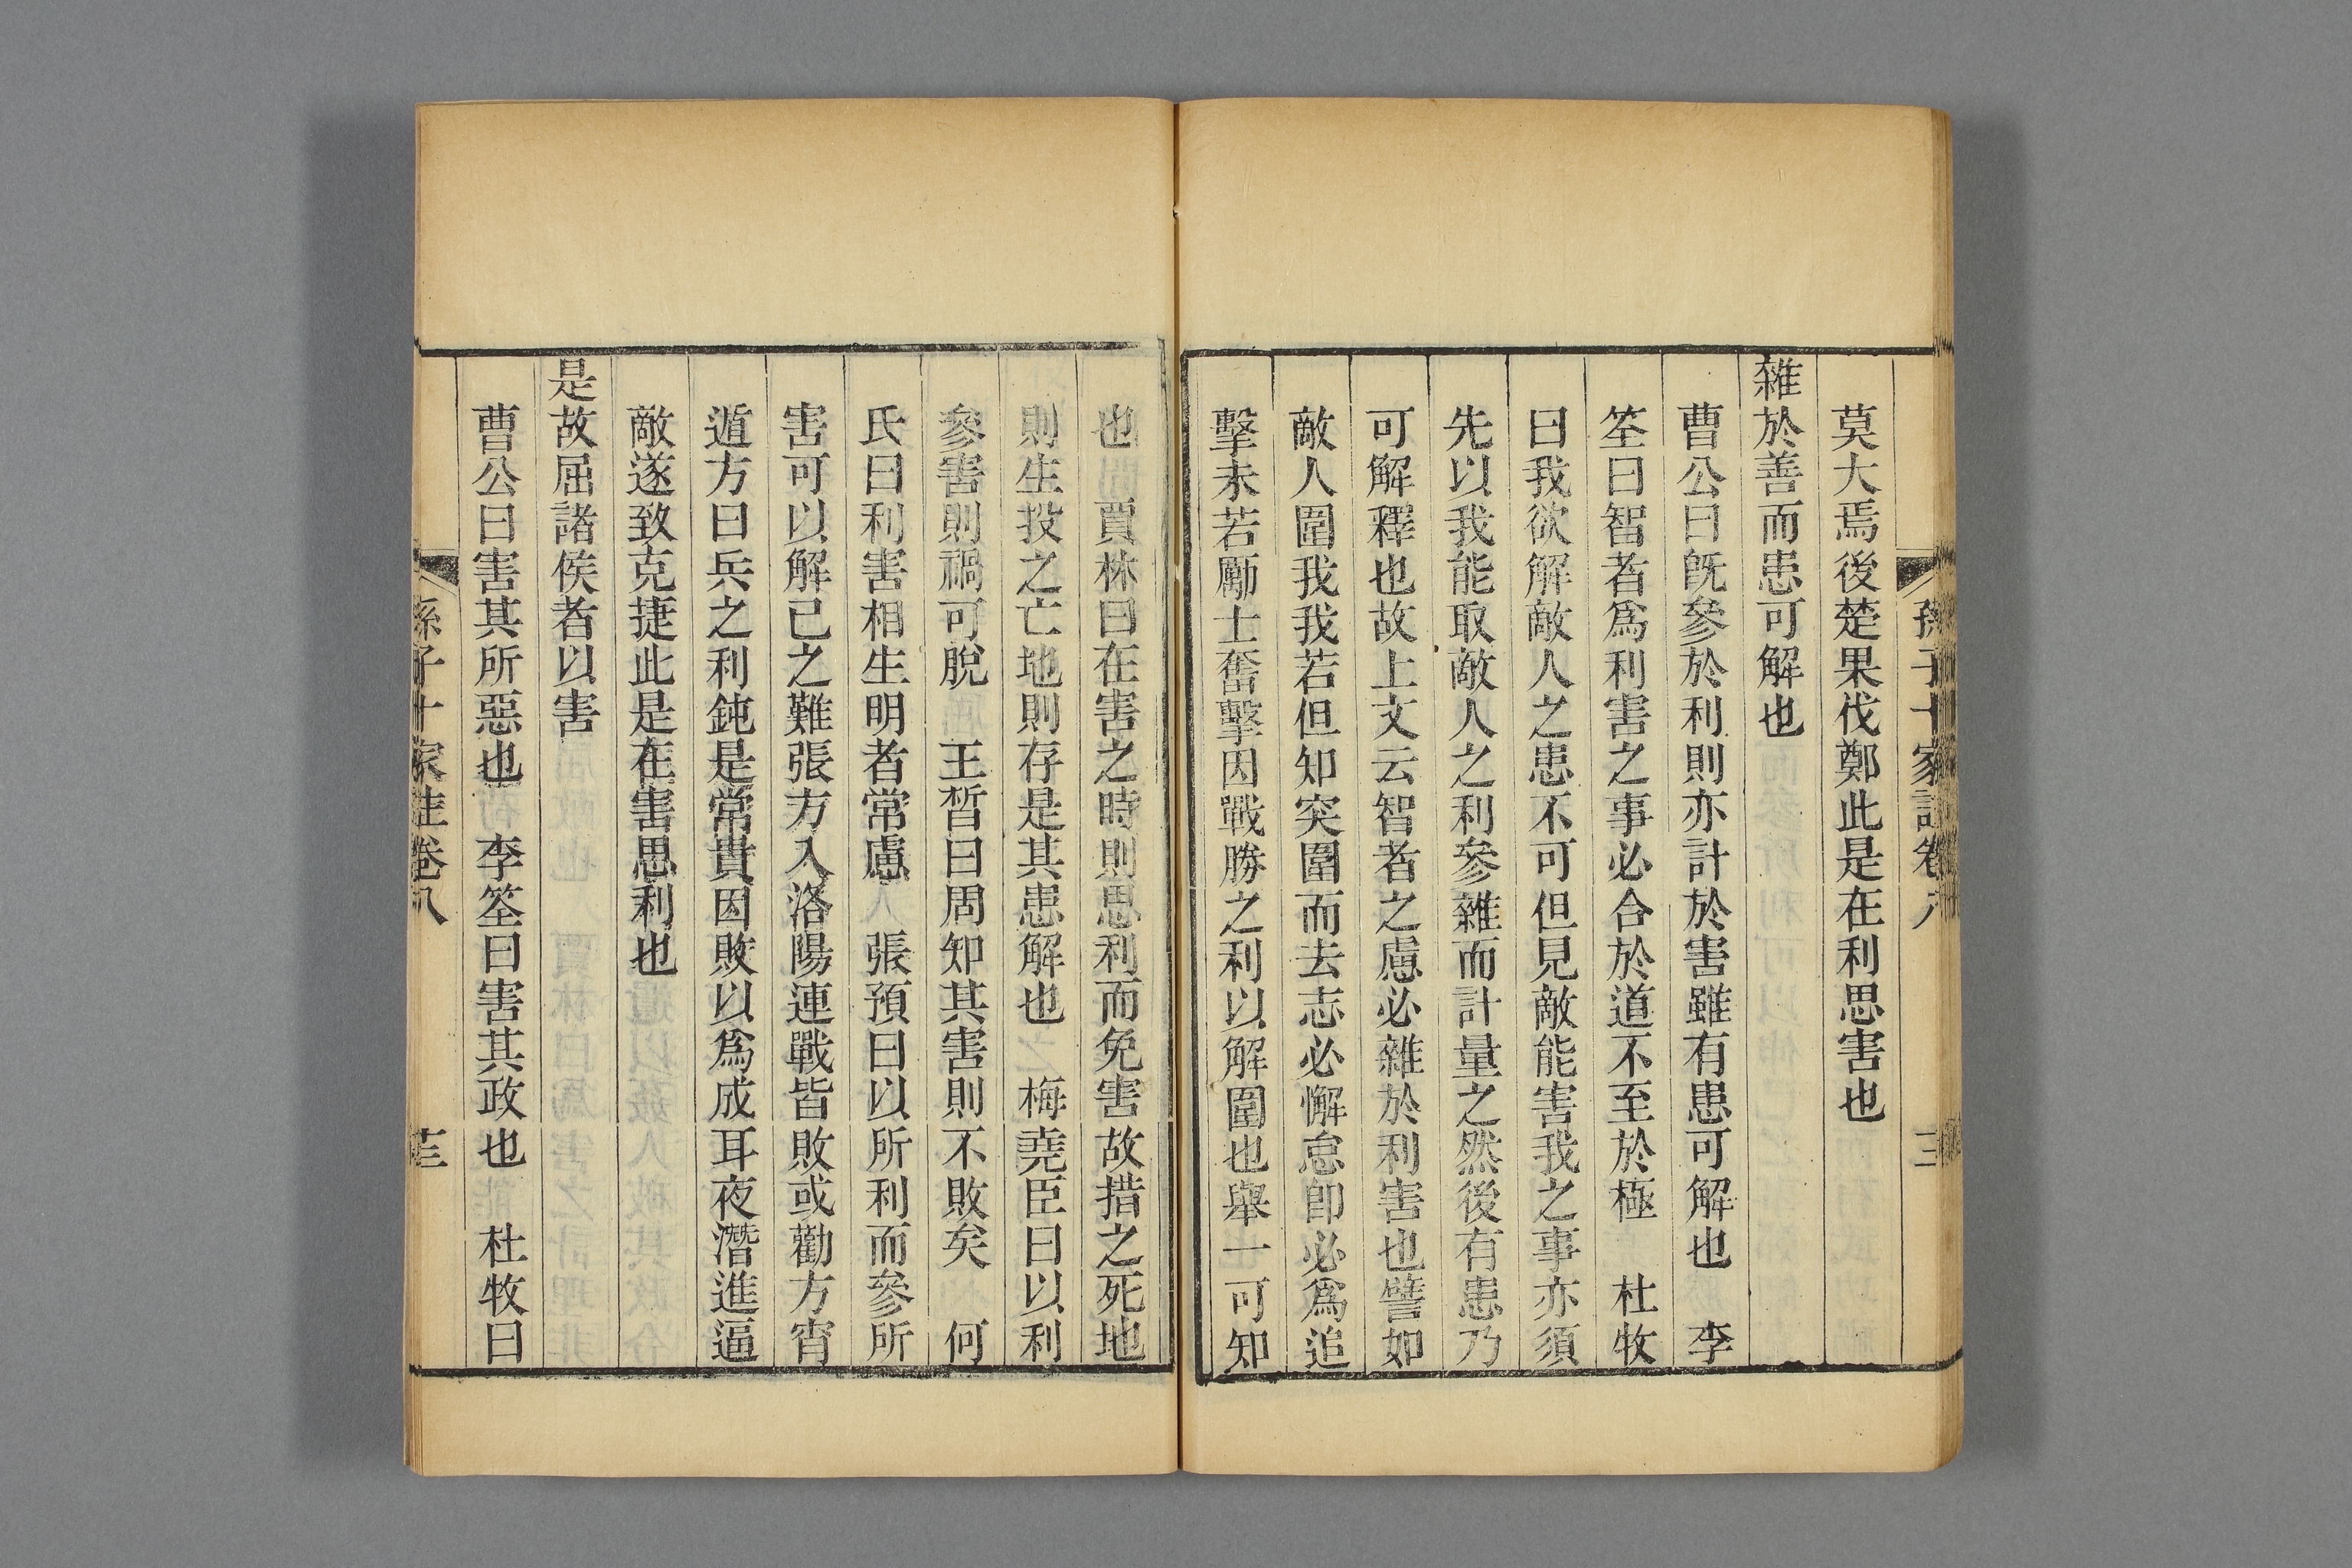 孫子十家註卷八
三
莫大焉後楚果伐鄭此是在利思害也
雜於善而患可解也
曹公曰旣參於利則亦計於害雖有患可解也　李
筌曰智者爲利害之事必合於道不至於極　杜牧
曰我欲解敵人之患不可但見敵能害我之事亦須
先以我能取敵人之利參雜而計量之然後有患乃
可解釋也故上文云智者之慮必雜於利害也譬如
敵人圍我我若但知突圍而去志必懈怠卽必爲追
擊未若勵士奮擊因戰勝之利以解圍也舉一可知
也　賈林曰在害之時則思利而免害故措之死地
則生投之亡地則存是其患解也　梅堯臣曰以利
參害則禍可脫　王晳曰周知其害則不敗矣　何
氏曰利害相生明者常慮　張預曰以所利而參所
害可以解己之難張方入洛陽連戰皆敗或勸方宵
遁方曰兵之利鈍是常貴因敗以爲成耳夜潛進逼
敵遂致克捷此是在害思利也
是故屈諸侯者以害
曹公曰害其所惡也　李筌曰害其政也　杜牧曰
孫子十家註卷八